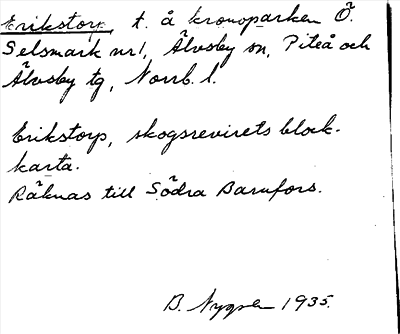 Erikstorp, t. å kronoparken Ö.
Selsmark nr 1, Älvsby sn, Piteå och
Älvsby tg, Norrb. l.
Erikstorp, skogsrevirets block-
karta.
Räknas till Södra Barnfors.
B. Nygren 1935.